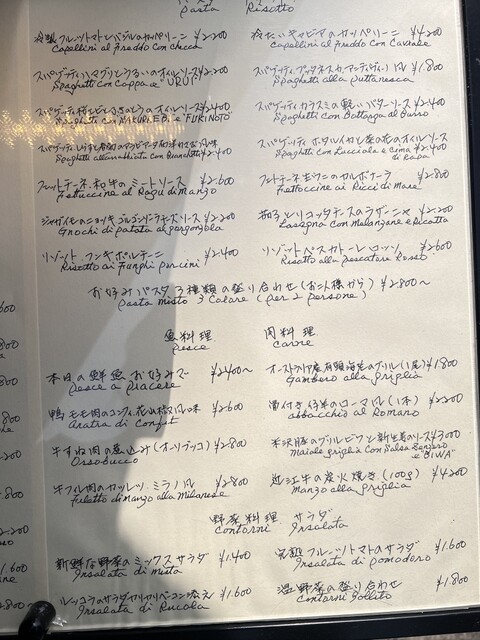 Pasta Risotto
冷製フルーツトマトとバジルのカッペリーニ ¥2.200
Capellini al freddo con checca
冷たいキャビアのカッペリーニ ¥4.200
Capellini al freddo con Caviale
スパゲッティハマグリとうるいのオイルソース ¥2.200
Spaghetti con Coppa e "URUI"
スパゲッティプッタネスカ ¥1.800
Spaghetti alla puttanesca
スパゲッティ桜えびとふきのとうのオイルソース ¥2.400
Spaghetti con SAKURAEBI e "FUKINOTO"
スパゲッティカラスミの軽いバターソース ¥2.400
Spaghetti con Bottarga al Burro
¥2.400
スパゲッティホタルイカと菜の花のオイルソース
Spaghetti con Lucciola e Cima di Rapa ¥2.400
フェットチーネ和牛のミートソース ¥2.600
Fettuccine al Ragu di manzo
フェットチーネ生ウニのカルボナーラ ¥2.800
Fettoccine ai Ricci di Mare
ジャガイモのニョッキゴルゴンゾーラチーズソース ¥2.200
Gnochi di patata al gorgonzola
茄子とリコッタチーズのラザーニャ ¥2.200
Lasagna con Melanzane e Ricotta
リゾートフンギポルチーニ ¥2.400
Risotto ai Funghi porcini
リゾットペスカトーレロッソ ¥2.600
Risotto alla pescatore Rosso
お好みパスタ3種類の盛り合わせ(お二人様から) ¥2.800〜
Pasta misto 3 Colore (per 2 persone)
魚料理
Pesce
肉料理
Carne
本日の鮮魚お好みで ¥2.400〜
Pesce a piacere
オーストラリア産有頭海老のグリル(1尾) ¥1.800
Gambero alla griglia
鴨モモ肉のコンフィ花山椒風味 ¥2.600
Anatra di Confit
骨付き仔羊のローマ風(1本) ¥2.200
abbacchio al Romano
牛すね肉の煮込み(オッソブッコ) ¥2.800
Ossobucco
米沢豚のグリルビワと新生姜のソース ¥3000
maiale griglia con Salsa Zenzero e "BIWA"
牛フィレ肉のカツレツミラノ風 ¥2.800
Filetto di manzo alla Milanese
近江牛の炭火焼き(100g) ¥4.200
Manzo alla griglia
野菜料理 サラダ
Contorni Insalata
新鮮な野菜のミックスサラダ ¥1.400
Insalata di mista
完熟フルーツトマトのサラダ ¥1.600
Insalata di pomodoro
ルッコラのサラダカリカリベーコン添え ¥1.600
Insalata di Rucola
温野菜の盛り合わせ ¥1.800
Contorni Bollito